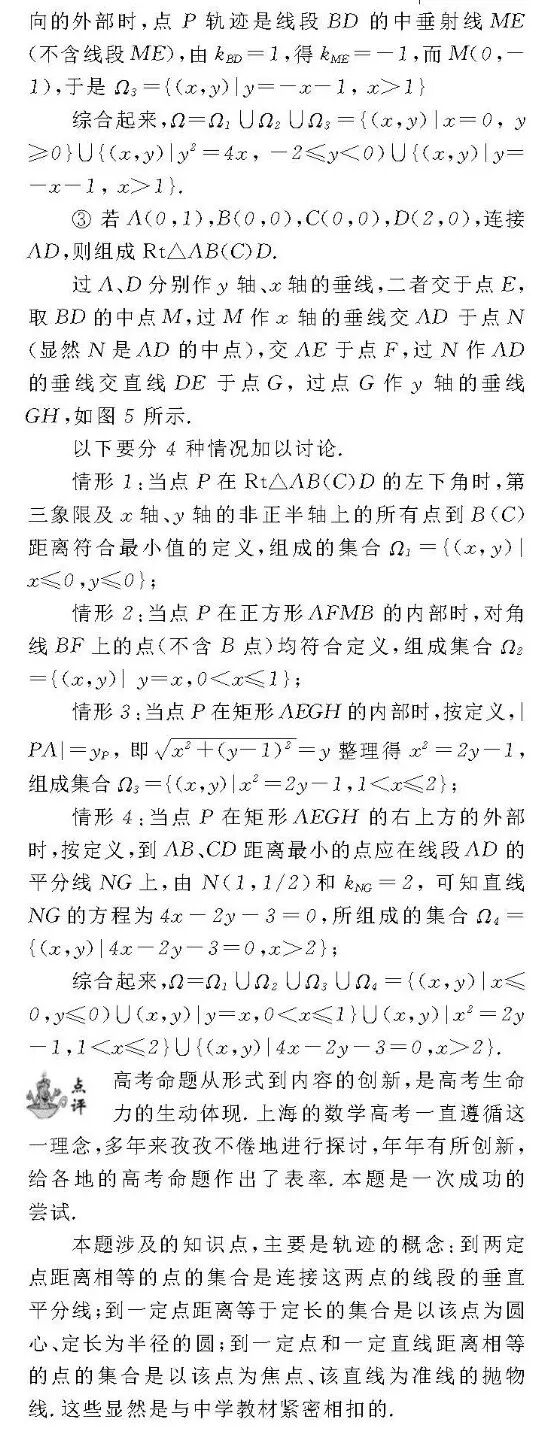 向的外部时,点 P 轨迹是线段 BD 的中垂射线 ME
(不含线段 ME),由 k_BD=1,得 k_ME=-1,而 M(0,-
1),于是 Ω₃={(x,y)|y=-x-1, x>1}
综合起来,Ω=Ω₁∪Ω₂∪Ω₃={(x,y)|x=0, y
≥0}∪{(x,y)|y²=4x, -2≤y<0)∪{(x,y)|y=
-x-1, x>1}.
③ 若 A(0,1),B(0,0),C(0,0),D(2,0),连接
AD,则组成 Rt△AB(C)D.
过 A、D 分别作 y 轴、x 轴的垂线,二者交于点 E,
取 BD 的中点 M,过 M 作 x 轴的垂线交 AD 于点 N
(显然 N 是 AD 的中点),交 AE 于点 F,过 N 作 AD
的垂线交直线 DE 于点 G, 过点 G 作 y 轴的垂线
GH,如图 5 所示.
以下要分 4 种情况加以讨论.
情形 1:当点 P 在 Rt△AB(C)D 的左下角时,第
三象限及 x 轴、y 轴的非正半轴上的所有点到 B(C)
距离符合最小值的定义,组成的集合 Ω₁={(x,y)|
x≤0,y≤0};
情形 2:当点 P 在正方形 AFMB 的内部时,对角
线 BF 上的点(不含 B 点)均符合定义,组成集合 Ω₂
={(x,y)| y=x,0<x≤1};
情形 3:当点 P 在矩形 AEGH 的内部时,按定义,|
PA|=y_P, 即 √(x²+(y-1)²)=y 整理得 x²=2y-1,
组成集合 Ω₃={(x,y)|x²=2y-1,1<x≤2};
情形 4:当点 P 在矩形 AEGH 的右上方的外部
时,按定义,到 AB、CD 距离最小的点应在线段 AD 的
平分线 NG 上,由 N(1,1/2)和 k_NG=2, 可知直线
NG 的方程为 4x-2y-3=0,所组成的集合 Ω₄=
{(x,y)|4x-2y-3=0,x>2};
综合起来,Ω=Ω₁∪Ω₂∪Ω₃∪Ω₄={(x,y)|x≤
0,y≤0)∪(x,y)|y=x,0<x≤1}∪(x,y)|x²=2y
-1,1<x≤2}∪{(x,y)|4x-2y-3=0,x>2}.
点评 高考命题从形式到内容的创新,是高考生命
力的生动体现. 上海的数学高考一直遵循这
一理念,多年来孜孜不倦地进行探讨,年年有所创新,
给各地的高考命题作出了表率. 本题是一次成功的
尝试.
本题涉及的知识点,主要是轨迹的概念:到两定
点距离相等的点的集合是连接这两点的线段的垂直
平分线;到一定点距离等于定长的集合是以该点为圆
心、定长为半径的圆;到一定点和一定直线距离相等
的点的集合是以该点为焦点、该直线为准线的抛物
线. 这些显然是与中学教材紧密相扣的.